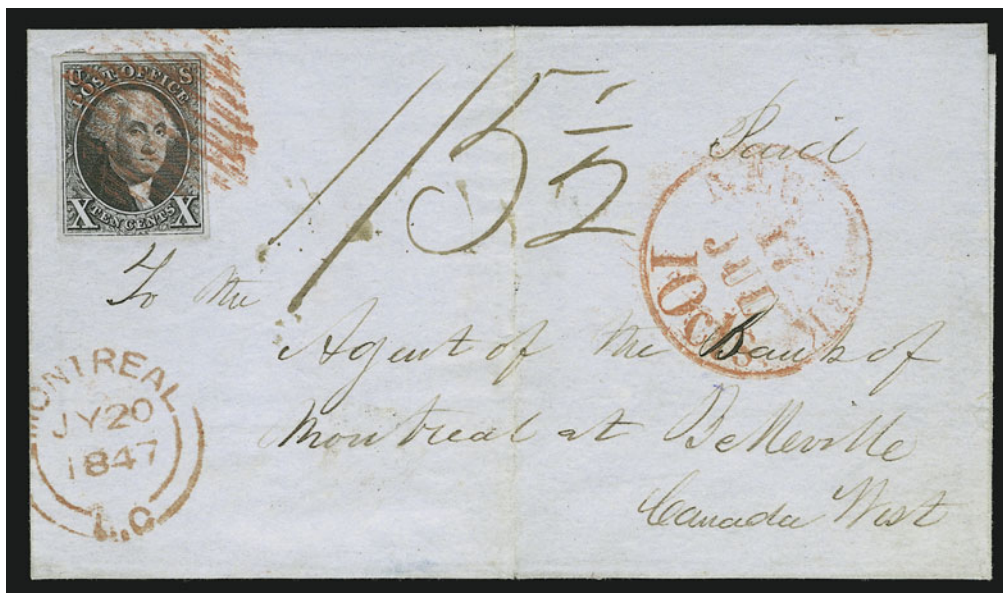 U S
POST OFFICE
X TEN CENTS X
15 1/2
Paid
NEW YORK
17
JUL
10cts
To the
Agent of the Bank of
Montreal at Belleville
Canada West
MONTREAL
JY 20
1847
L.C